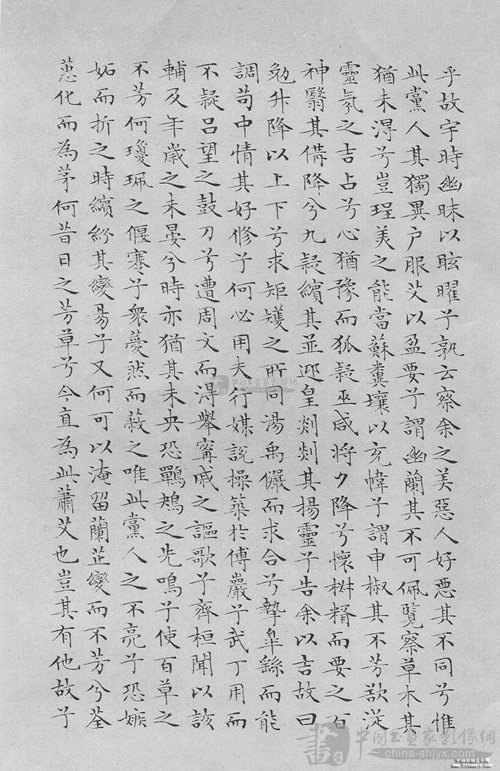 乎故宇時幽昧以眩曜兮孰云察余之美惡人好惡其不同兮惟
此黨人其獨異户服艾以盈要兮謂幽蘭其不可佩覽察草木其
猶未淂兮豈珵美之能當蘇糞壤以充幃兮謂申椒其不芳欲從
靈氛之吉占兮心猶豫而狐疑巫咸將夕降兮懷椒糈而要之百
神翳其備降兮九疑繽其並迎皇剡剡其揚靈兮告余以吉故曰
勉升降以上下兮求矩矱之所同湯禹儼而求合兮摯皐繇而能
調苟中情其好修兮何必用夫行媒説操築於傅巖兮武丁用而
不疑吕望之鼓刀兮遭周文而淂舉甯戚之謳歌兮齊桓聞以該
輔及年歲之未晏兮時亦猶其未央恐鷤鴂之先鳴兮使百草之
不芳何瓊珮之偃蹇兮衆薆然而蔽之唯此黨人之不亮兮恐嫉
妬而折之時繽紛其變易兮又何可以淹留蘭芷變而不芳兮荃
蕙化而為茅何昔日之芳草兮今直為此蕭艾也豈其有他故兮
中国书画家影像網
china-shjyx.com